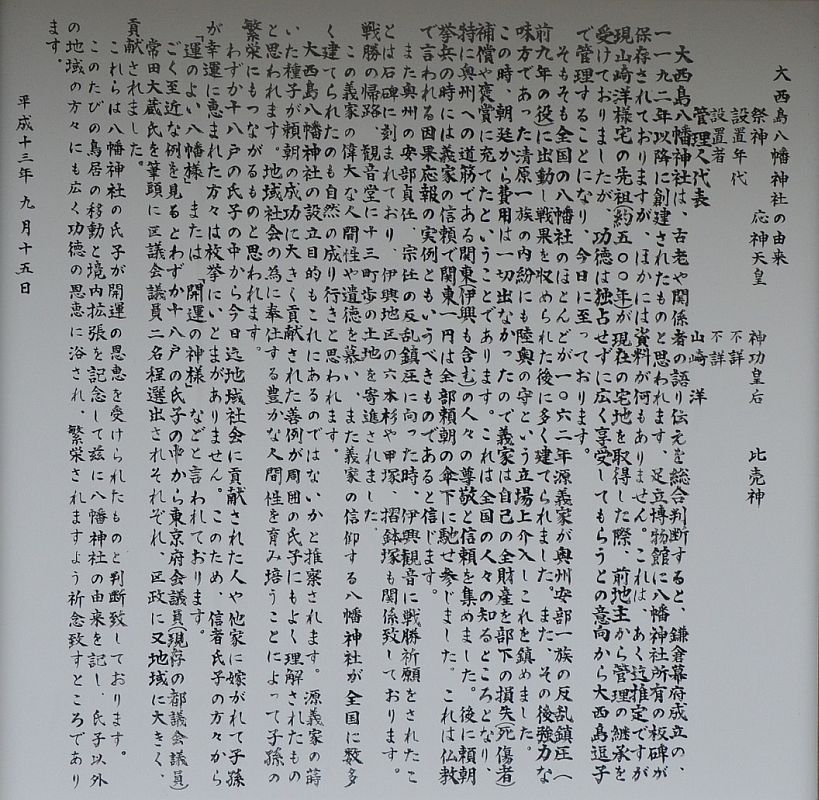 大西島八幡神社の由来
祭神　応神天皇　神功皇后　比売神
設置年代　不詳
設置者　不詳
管理人代表　山崎洋
大西島八幡神社は、古老や関係者の語り伝えを総合判断すると、鎌倉幕府成立の、
一一九二年以降に創建されたものと思われます、足立博物館に八幡神社所有の板碑が
保存されておりますが、ほかには資料が何もありません。これは、あく迄推定ですが
現山崎洋様宅の先祖約五〇〇年が現在の宅地を取得した際、前地主から管理の継承を
受けておりましたが、功徳は独占せずに広く享受してもらうとの意向から大西島逗子
で管理することになり、今日に至っております。
そもそも全国の八幡社のほとんどが一〇六二年源義家が奥州安部一族の反乱鎮圧（
前九年の役に出動し戦果を収められた後に多く建てられました。また、その後強力な
味方であった清原一族の内紛にも陸奥の守という立場上介入しこれを鎮めました。
この時、朝廷から費用は一切出なかったので義家は自己の全財産を部下の損失（死傷者）
補償や褒賞に充てたということであります。これは全国の人々の知るところとなり、
特に奥州への道筋である関東（伊興も含む）の人々の尊敬と信頼を集めました。後に頼朝
挙兵の時には義家の信頼で関東一円は全部頼朝の傘下に馳せ参じました。これは仏教
で言われる因果応報の実例ともいうべきものであると信じます。
また奥州の安部貞任、宗任の反乱鎮圧に向った時、伊興観音に戦勝祈願をされたこ
とは石碑に刻まれており、伊興地区の六本杉や甲塚、摺鉢塚も関係致しております。
戦勝の帰路、観音堂に十三町歩の土地を寄進されました。
この義家の偉大な人間性や遺徳を慕い、また義家の信仰する八幡神社が全国に数多
く建てられたのも自然の成り行きと思われます。
大西島八幡神社の設立目的もこれにあるのではないかと推察されます。源義家の蒔
いた種子が頼朝の成功に大きく貢献された善例が周囲の氏子にもよく理解されたもの
と思われます。地域社会の為に奉仕する豊かな人間性を育み培うことによって子孫の
繁栄にもつながるものと思われます。
わずか十八戸の氏子の中から今日迄地域社会に貢献された人や他家に嫁がれて子孫
が幸運に恵まれた方々は枚挙にいとまがありません。このため、信者氏子の方々から
「運のよい八幡様」または「開運の神様」などと言われております。
ごく至近な例を見るとわずか十八戸の氏子の中から東京府会議員（現存の都議会議員）
常田大蔵氏を筆頭に区議会議員二名程選出されそれぞれ、区政に又地域に大きく、
貢献されました。
これらは八幡神社の氏子が開運の恩恵を受けられたものと判断致しております。
このたびの鳥居の移動と境内拡張を記念して茲に八幡神社の由来を記し、氏子以外
の地域の方々にも広く功徳の恩恵に浴され、繁栄されますよう祈念致すところであり
ます。
平成十三年　九月十五日